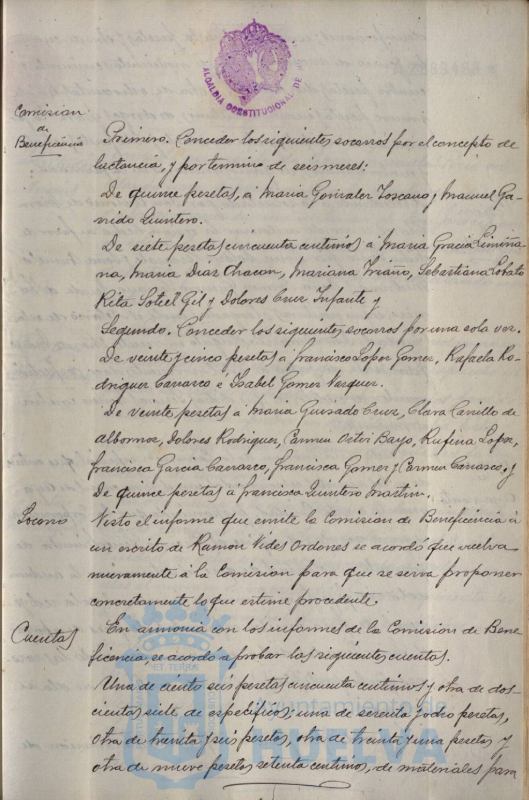 ALCALDIA CONSTITUCIONAL DE
Comision
de
Beneficencia
Primero. Conceder los siguientes socorros por el concepto de
lactancia, y por termino de seis meses:
De quince pesetas, á Maria Gonzalez Toscano y Manuel Ga-
rrido Quintero.
De siete pesetas cincuenta centimos á Maria Gracia Limiña-
na, Maria Diaz Chacon, Mariana Triano, Sebastiana Lobato
Rita Soteel Gil y Dolores Cruz Infante y
Segundo. Conceder los siguientes socorros por una sola vez.
De veinte y cinco pesetas á Francisco Lopez Gomez, Rafaela Ro-
driguez Carrasco é Isabel Gomez Vazquez.
De veinte pesetas á Maria Guisado Cruz, Clara Carrillo de
Albornoz, Dolores Rodriguez, Carmen Ortiz Bayo, Rufina Lopez,
Francisca Garcia Carrasco, Francisca Gomez y Carmen Carrasco, y
De quince pesetas á Francisca Quintero Martin.
Socorro
Visto el informe que emite la Comision de Beneficencia á
un escrito de Ramon Vides Ordones se acordó que vuelva
nuevamente á la Comision para que se sirva proponer
concretamente lo que estime procedente.
Cuentas
En armonia con los informes de la Comision de Bene-
ficencia, se acordó aprobar las siguientes cuentas.
Una de ciento seis pesetas cincuenta centimos y otra de dos-
cientas siete de especificos; una de sesenta y ocho pesetas,
otra de treinta y seis pesetas, otra de treinta y una pesetas y
otra de nueve pesetas setenta centimos, de materiales para
ET TERRA
Ayuntamiento de
HUELVA